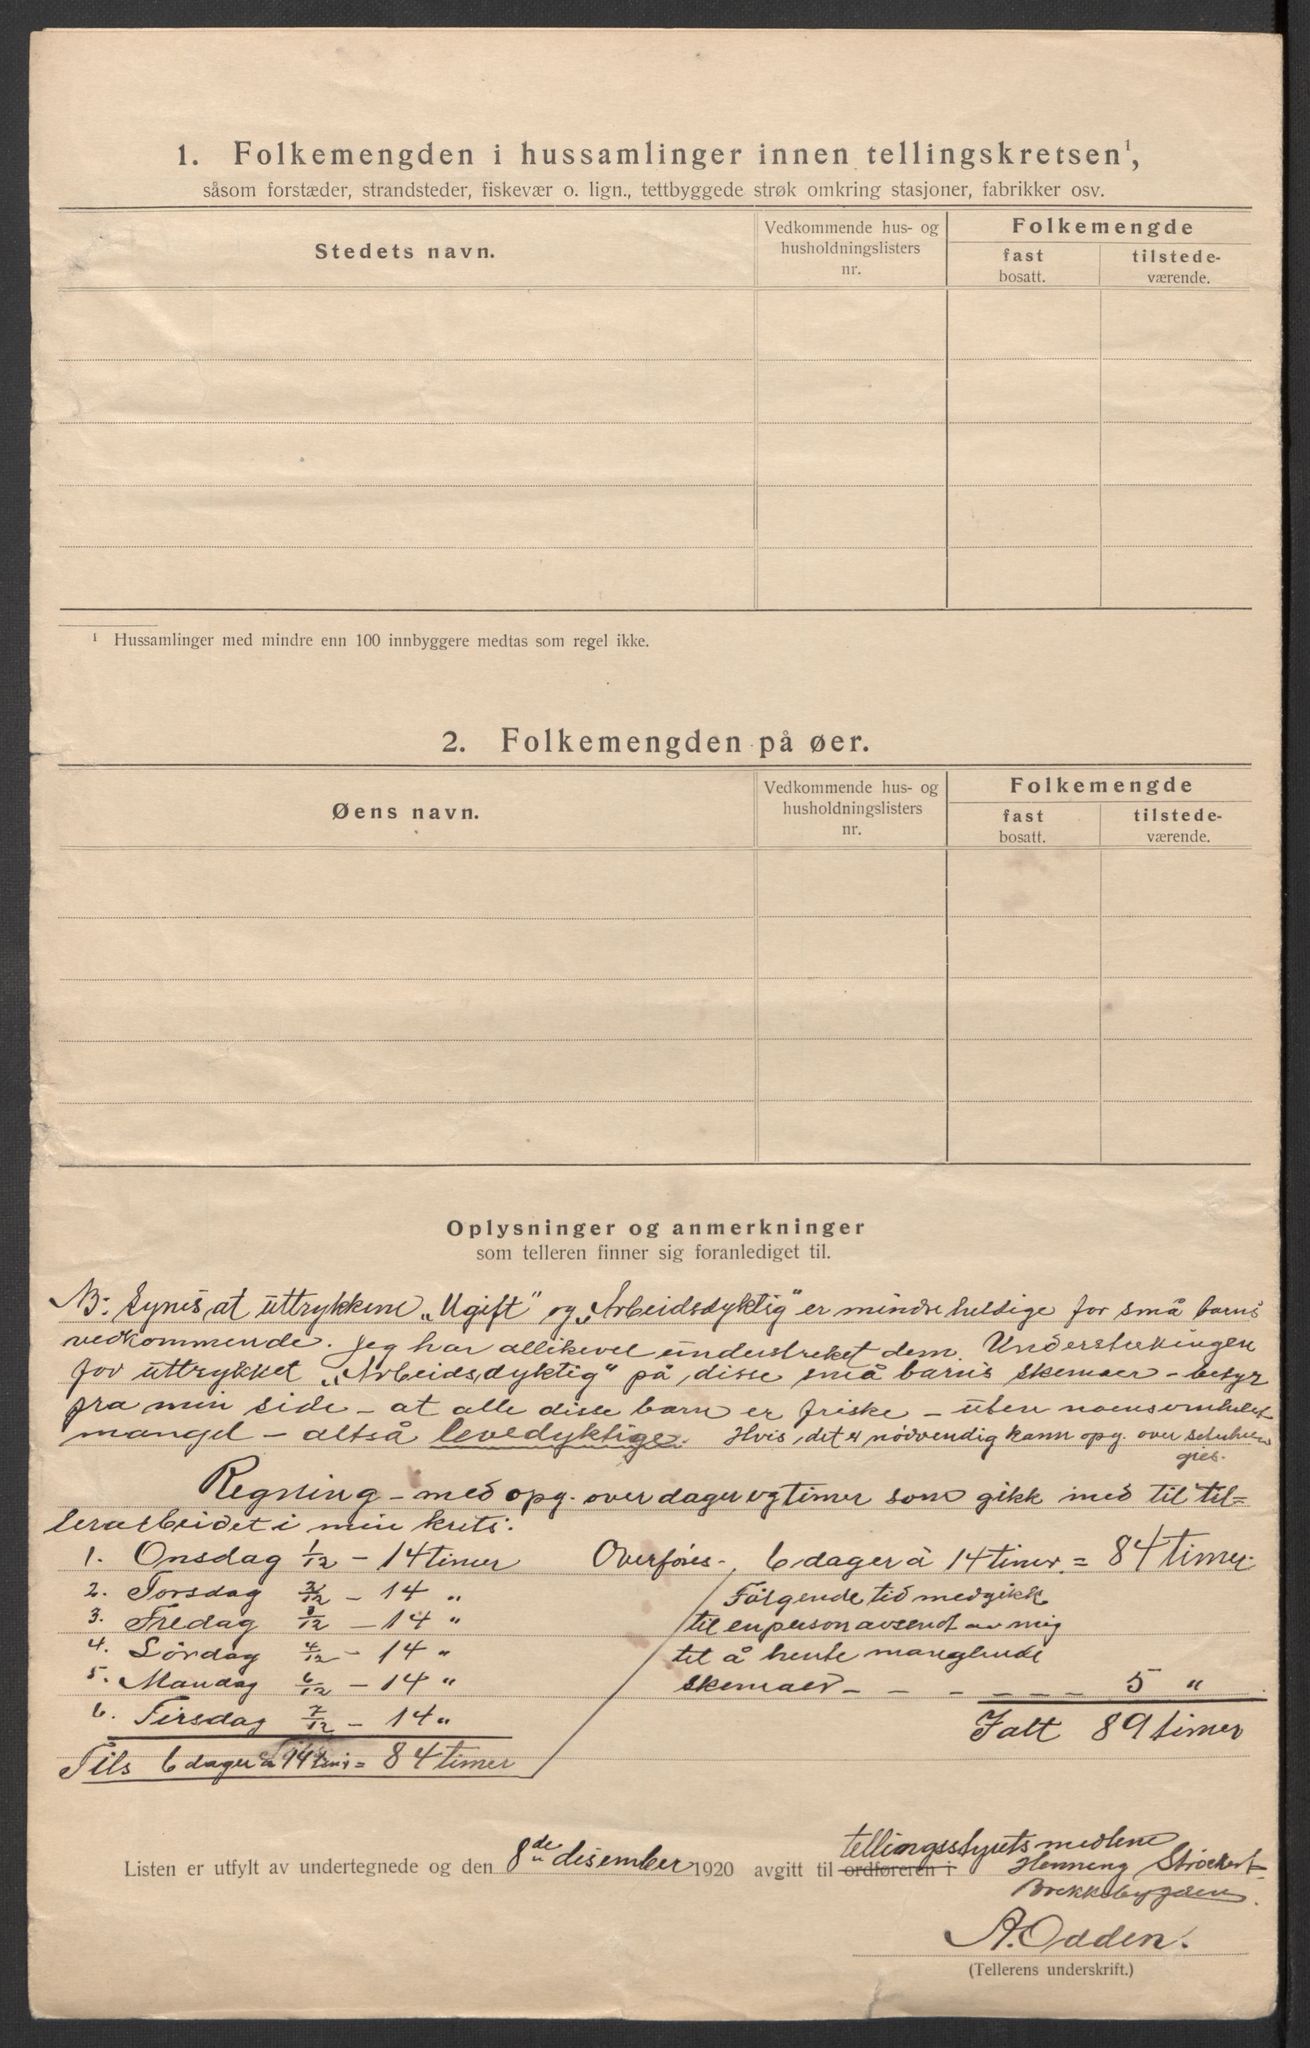 1. Folkemengden i hussamlinger innen tellingskretsen¹,
såsom forstæder, strandsteder, fiskevær o. lign., tettbyggede strøk omkring stasjoner, fabrikker osv.
Stedets navn.
Vedkommende hus- og
husholdningslisters
nr.
Folkemengde
fast
bosatt.
tilstede-
værende.
¹ Hussamlinger med mindre enn 100 innbyggere medtas som regel ikke.
2. Folkemengden på øer.
Øens navn.
Vedkommende hus- og
husholdningslisters
nr.
Folkemengde
fast
bosatt.
tilstede-
værende.
Oplysninger og anmerkninger
som telleren finner sig foranlediget til.
NB: Synes, at uttrykkene „Ugift" og „Arbeidsdyktig" er mindre heldige for små barns
vedkommende. Jeg har allikevel understreket dem. Understrekingen
for uttrykket „Arbeidsdyktig" på disse små barns skemaer – betyr
fra min side – at alle disse barn er friske – uten noensomhelst
mangel – altså levedyktige. Hvis det er nødvendig kann opg. over
gies.
Regning – med opg. over dager og timer som gikk med til tel=
lerarbeidet i min krets:
1. Onsdag 1/12 – 14 timer
2. Torsdag 2/12 – 14 „
3. Fredag 3/12 – 14 „
4. Lördag 4/12 – 14 „
5. Mandag 6/12 – 14 „
6. Tirsdag 7/12 – 14 „
Tils 6 dager a 14 tim = 84 timer
Overföres. 6 dager à 14 timer = 84 timer.
Fölgende tid medgikk
til en person avsendt av mig
til å hente manglende
skemaer – – – – – – 5 „
Ialt 89 timer
Listen er utfylt av undertegnede og den 8de disember 1920 avgitt til ordføreren i
tellingsstyrets medlem
Henning Ströckert
Brekkebygden.
A. Odden.
(Tellerens underskrift.)